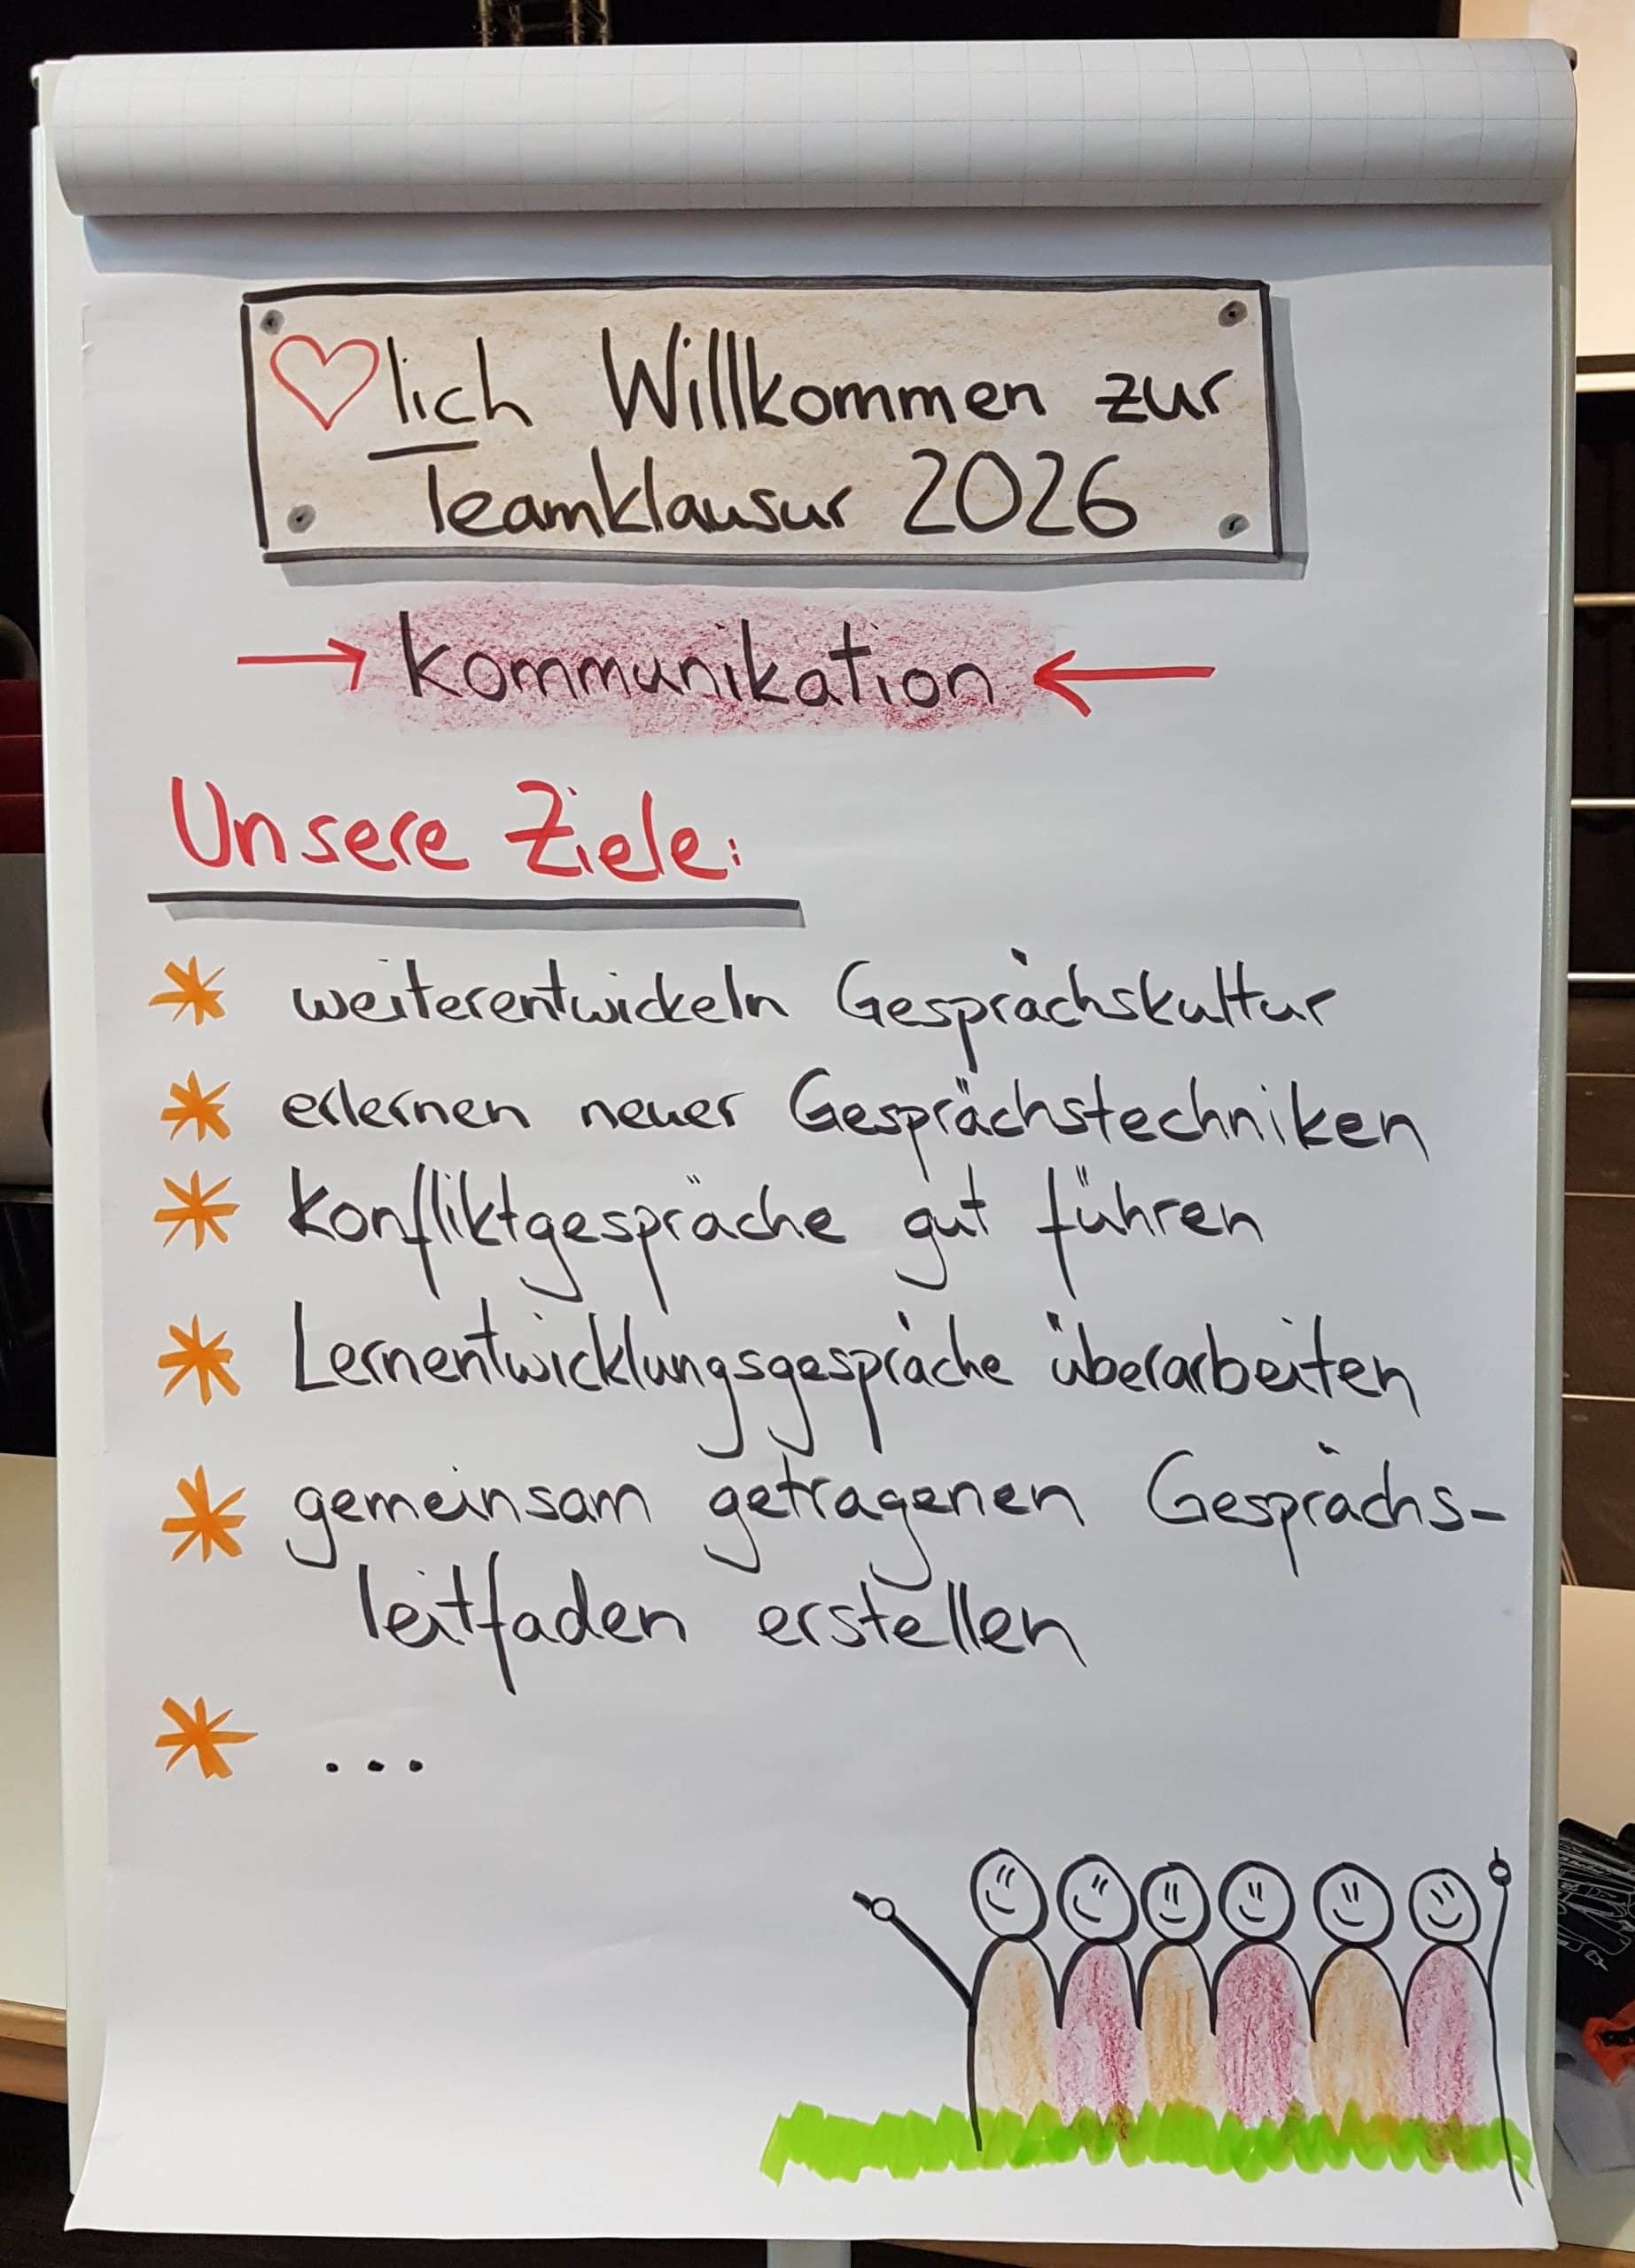 ♡lich Willkommen zur
Teamklausur 2026
→ Kommunikation ←
Unsere Ziele:
* weiterentwickeln Gesprächskultur
* erlernen neuer Gesprächstechniken
* Konfliktgespräche gut führen
* Lernentwicklungsgespräche überarbeiten
* gemeinsam getragenen Gesprächs-
leitfaden erstellen
* ...